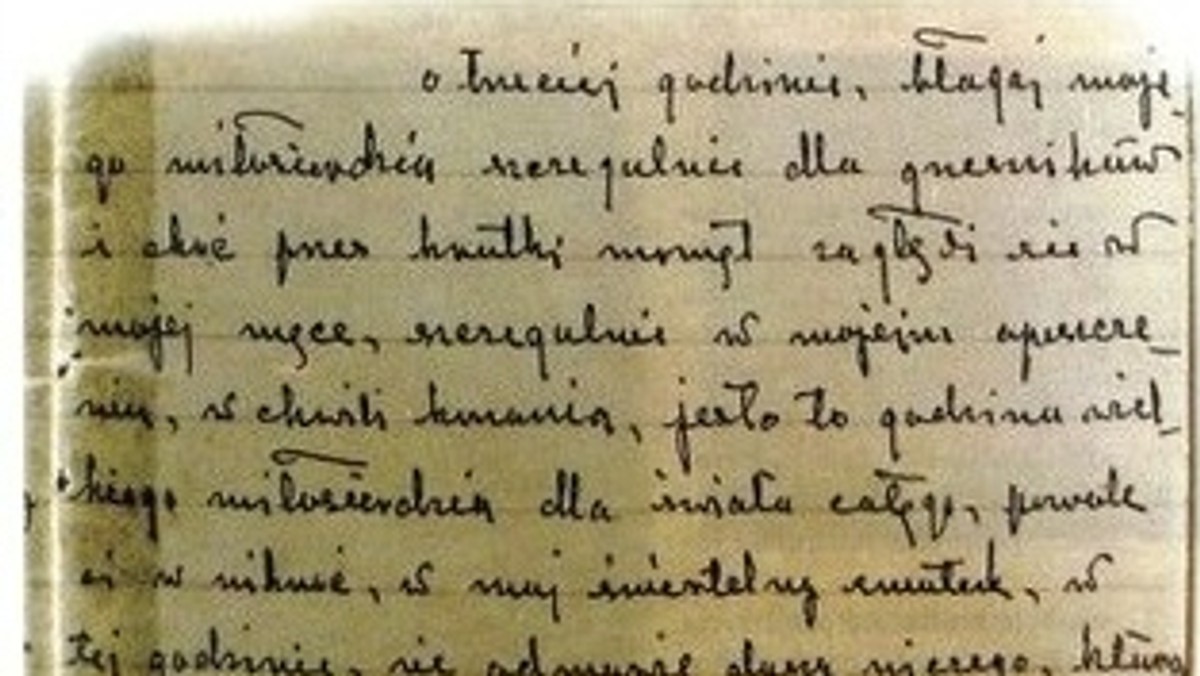 o trzeciej godzinie, błagaj moje-
go miłosierdzia szczegulnie dla grzeszników
i choć przez krutki moment zagłębi sie w
mojej męce, szczegulnie w mojem opuszcze-
niu, w chwili konania, jesto to godzina wiel-
kiego miłosierdzia dla świata całego, pozwole
ci wniknąć, w mój śmiertelny smutek, w
tej godzinie, nie odmówię duszy niczego, która